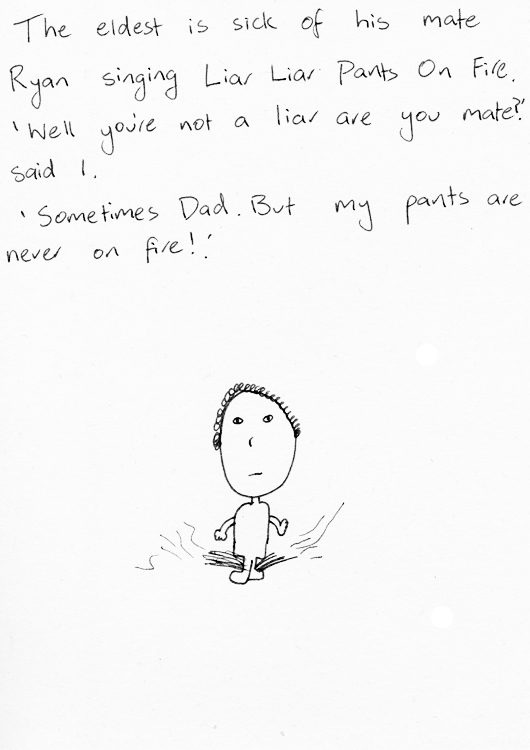 The eldest is sick of his mate
Ryan singing Liar Liar Pants On Fire.
'Well you're not a liar are you mate?'
said I.
'Sometimes Dad. But my pants are
never on fire!'